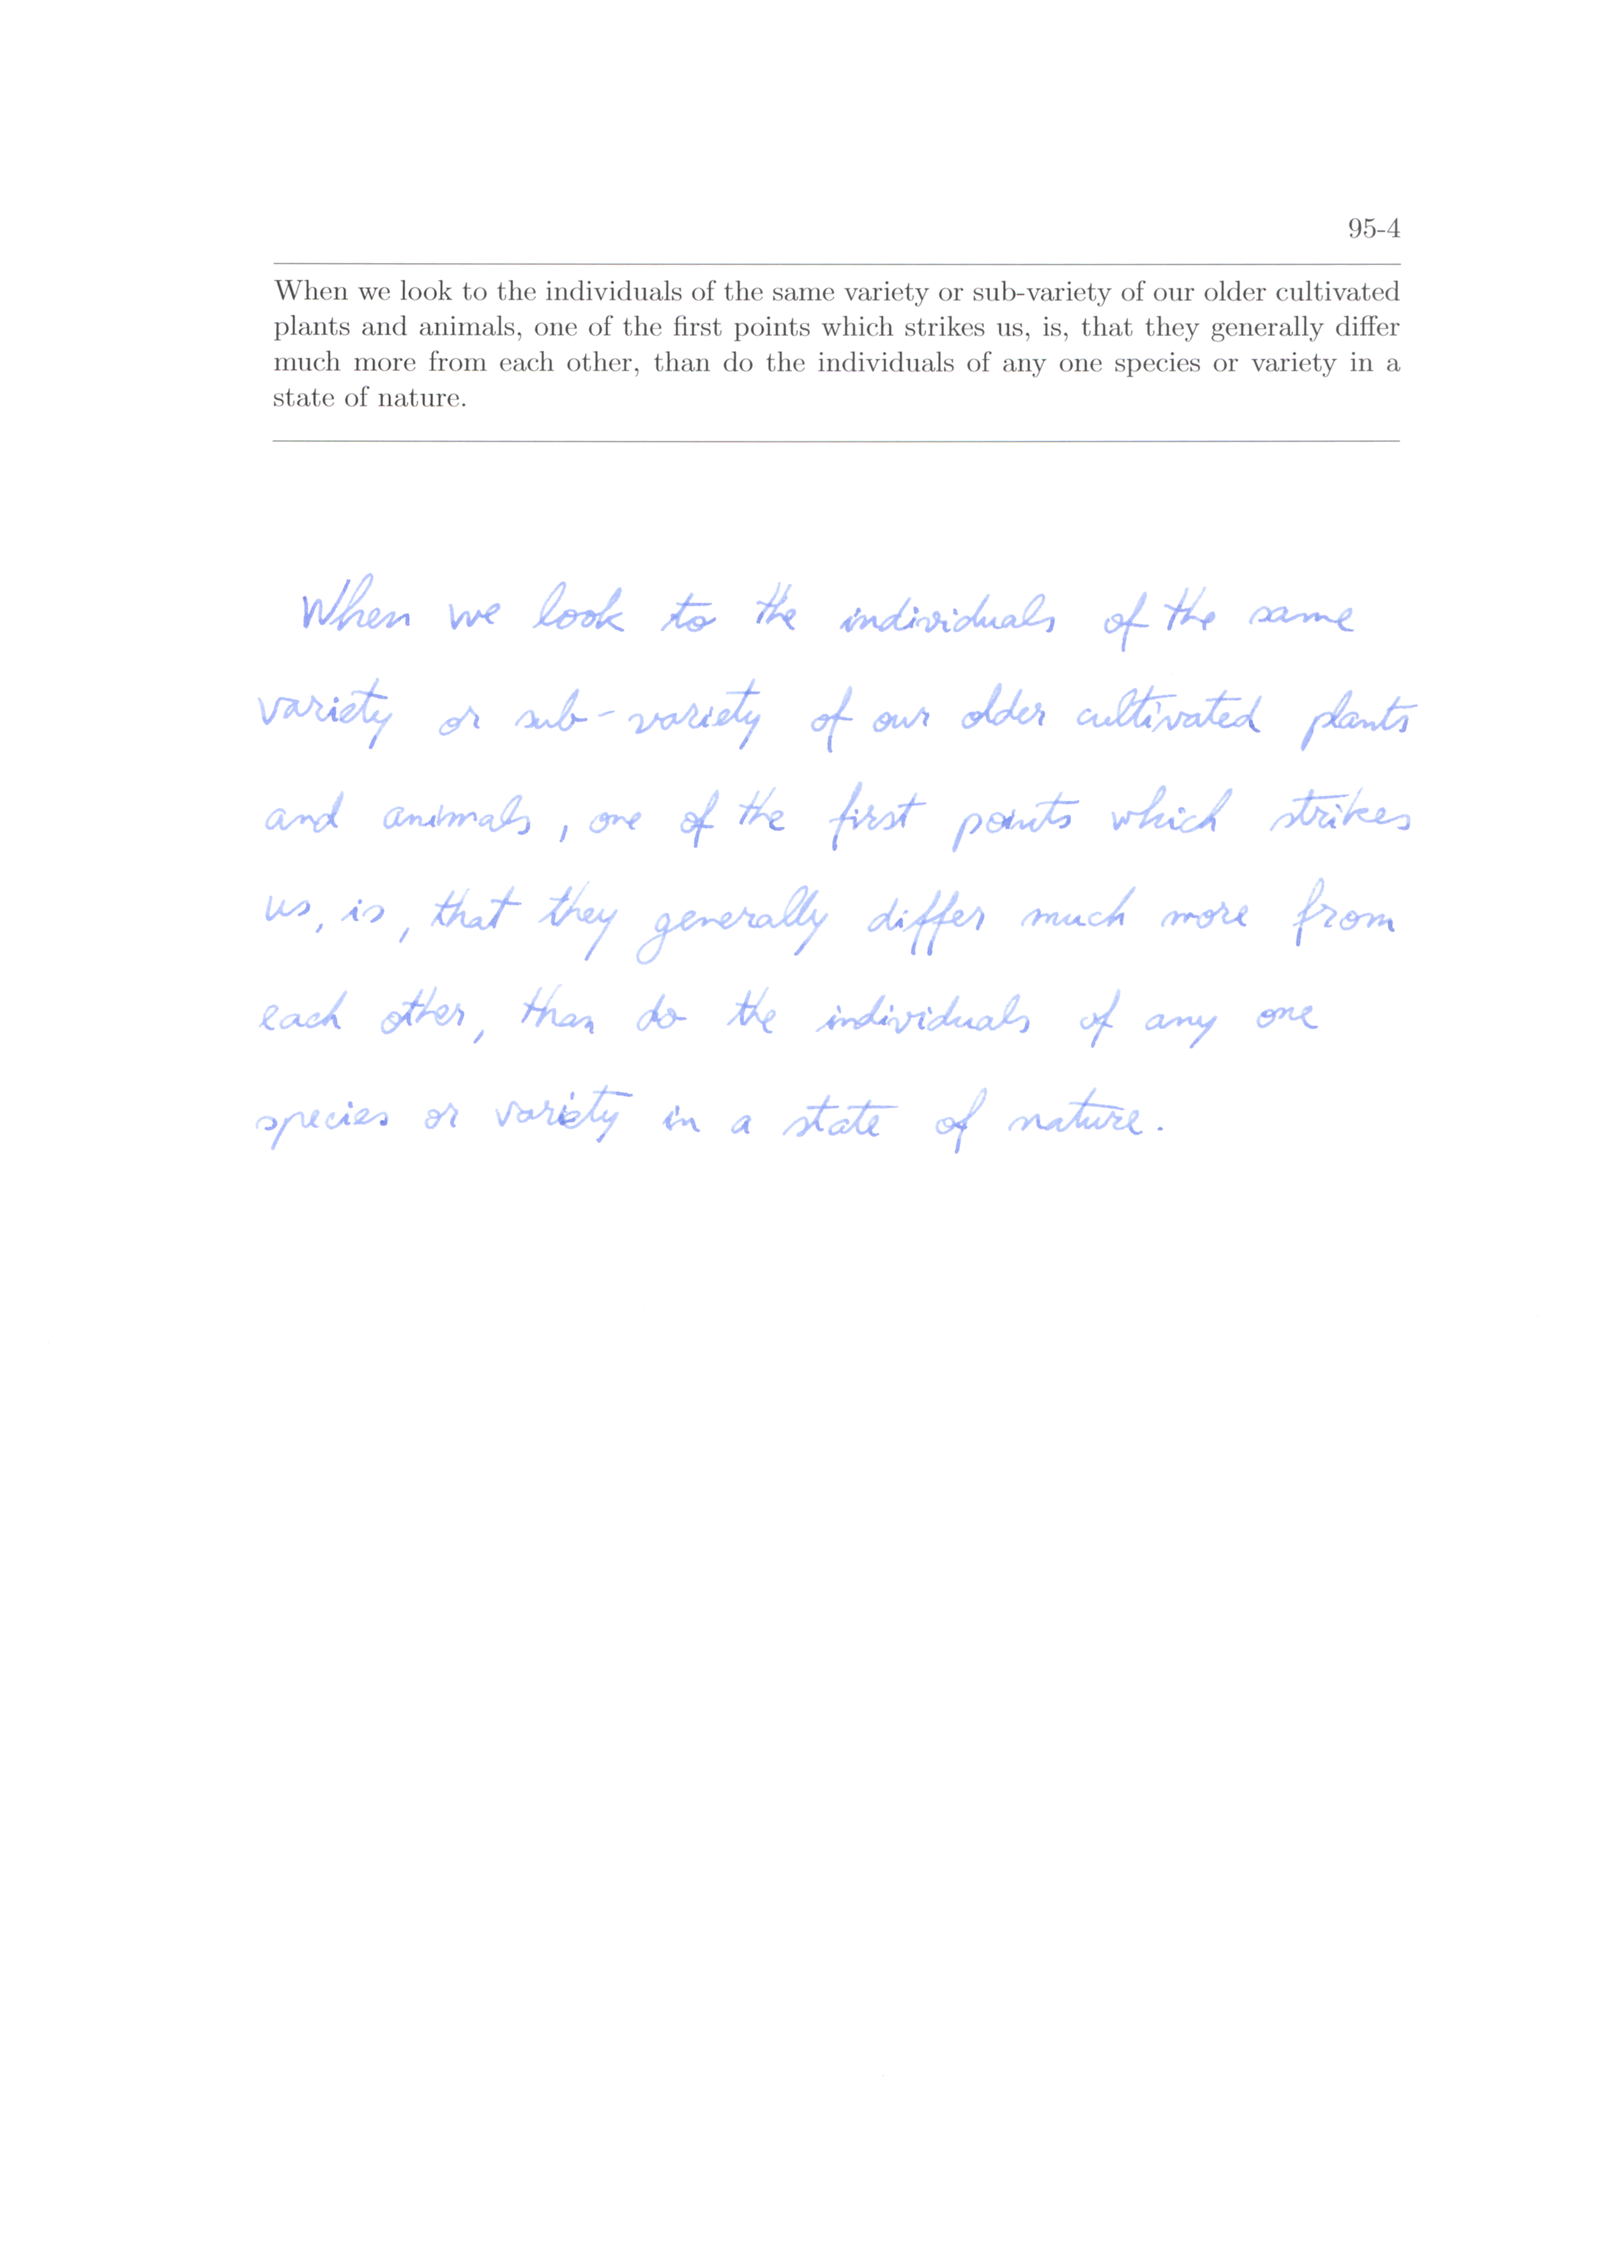 95-4
When we look to the individuals of the same variety or sub-variety of our older cultivated
plants and animals, one of the first points which strikes us, is, that they generally differ
much more from each other, than do the individuals of any one species or variety in a
state of nature.
When we look to the individuals of the same
variety or sub-variety of our older cultivated plants
and animals, one of the first points which strikes
us, is, that they generally differ much more from
each other, than do the individuals of any one
species or variety in a state of nature.